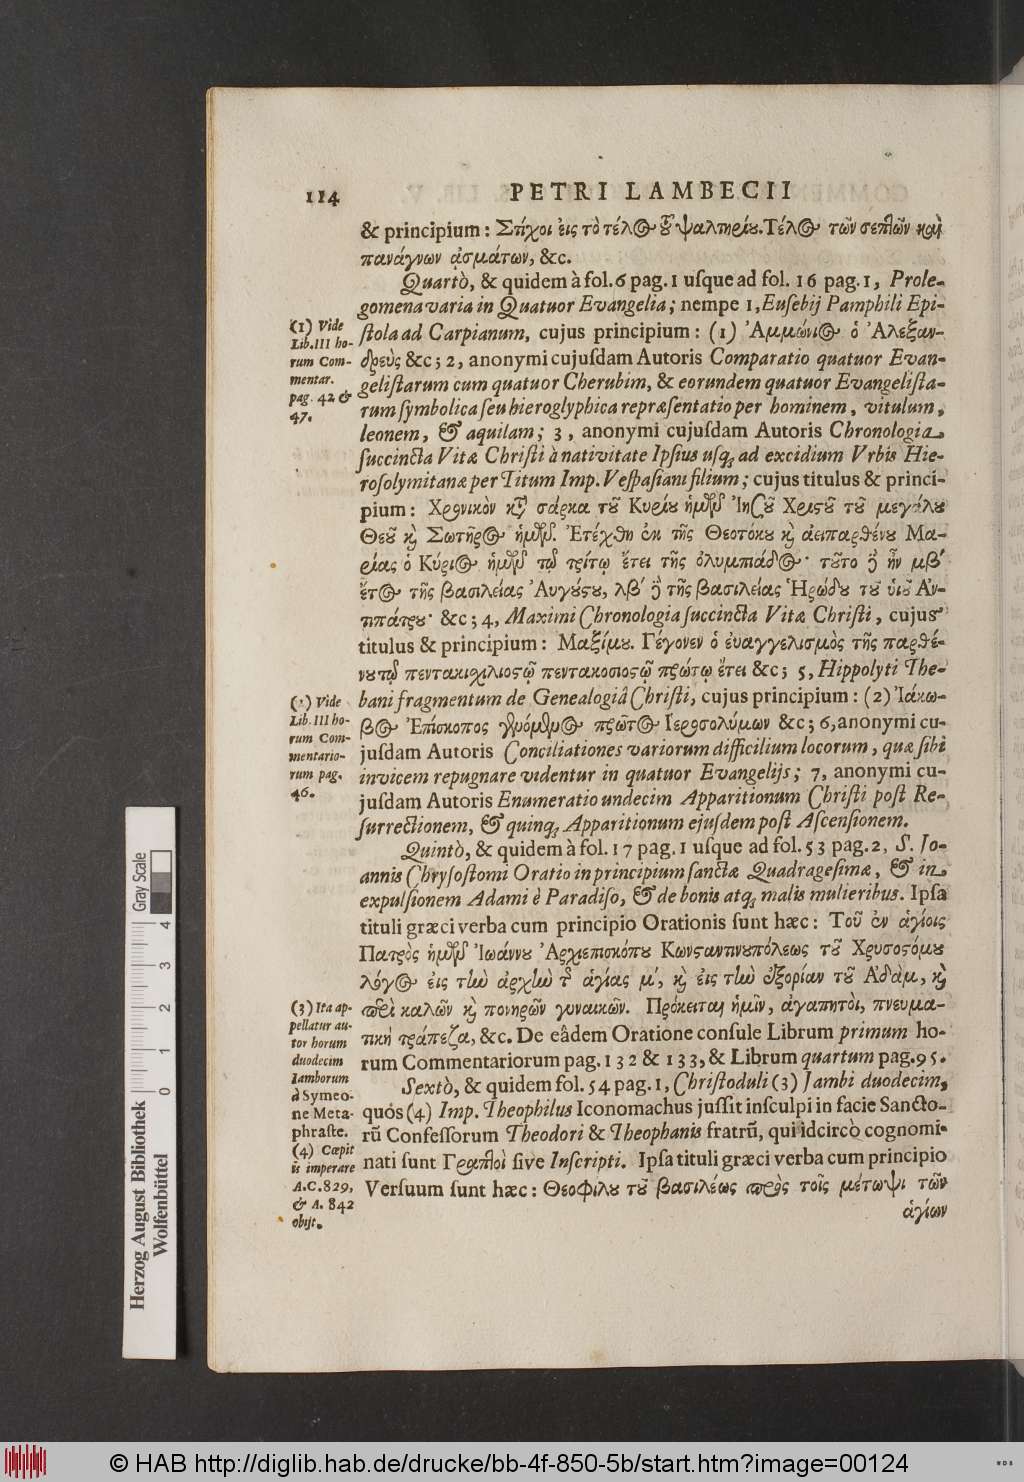 114
PETRI LAMBECII
& principium: Στίχοι εἰς τὸ τέλος τοῦ ψαλτηρίου. Τέλος τῶν σεπτῶν καὶ
πανάγνων ᾀσμάτων, &c.
Quartò, & quidem à fol. 6 pag. 1 uſque ad fol. 16 pag. 1, Prole-
gomena varia in Quatuor Evangelia; nempe 1, Euſebij Pamphili Epi-
ſtola ad Carpianum, cujus principium: (1) Ἀμμώνιος ὁ Ἀλεξαν-
δρεὺς &c; 2, anonymi cujuſdam Autoris Comparatio quatuor Evan-
geliſtarum cum quatuor Cherubim, & eorundem quatuor Evangeliſta-
rum ſymbolica ſeu hieroglyphica repræſentatio per hominem, vitulum,
leonem, & aquilam; 3, anonymi cujuſdam Autoris Chronologia
ſuccincta Vitæ Chriſti à nativitate Ipſius uſq; ad excidium Vrbis Hie-
roſolymitanæ per Titum Imp. Veſpaſiani filium; cujus titulus & princi-
pium: Χρονικὸν κατὰ σάρκα τοῦ Κυρίου ἡμῶν Ἰησοῦ Χριστοῦ τοῦ μεγάλου
Θεοῦ καὶ Σωτῆρος ἡμῶν. Ἐτέχθη ἐκ τῆς Θεοτόκου καὶ ἀειπαρθένου Μα-
ρίας ὁ Κύριος ἡμῶν τῷ τρίτῳ ἔτει τῆς ὀλυμπιάδος· τοῦτο δὲ ἦν μβʹ
ἔτος τῆς βασιλείας Ἀυγούστου, λβʹ δὲ τῆς βασιλείας Ἡρώδου τοῦ ὑιοῦ Ἀν-
τιπάτρου· &c; 4, Maximi Chronologia ſuccincta Vitæ Chriſti, cujus
titulus & principium: Μαξίμου. Γέγονεν ὁ ἐυαγγελισμὸς τῆς παρθέ-
νου τῷ πεντακιςχιλιοστῷ πεντακοσιοστῷ πρώτῳ ἔτει &c; 5, Hippolyti The-
bani fragmentum de Genealogiâ Chriſti, cujus principium: (2) Ἰάκω-
βος Ἐπίσκοπος γενόμενος πρῶτος Ἱεροσολύμων &c; 6, anonymi cu-
juſdam Autoris Conciliationes variorum difficilium locorum, quæ ſibi
invicem repugnare videntur in quatuor Evangelijs; 7, anonymi cu-
juſdam Autoris Enumeratio undecim Apparitionum Chriſti poſt Re-
ſurrectionem, & quinq; Apparitionum ejuſdem poſt Aſcenſionem.
Quintò, & quidem à fol. 17 pag. 1 uſque ad fol. 53 pag. 2, S. Jo-
annis Chryſoſtomi Oratio in principium ſanctæ Quadrageſimæ, & in
expulſionem Adami è Paradiſo, & de bonis atq; malis mulieribus. Ipſa
tituli græci verba cum principio Orationis ſunt hæc: Τοῦ ἐν ἁγίοις
Πατρὸς ἡμῶν Ἰωάννου Ἀρχιεπισκόπου Κωνσταντινουπόλεως τοῦ Χρυσοστόμου
λόγος εἰς τὴν ἀρχὴν τῆς ἁγίας μʹ, καὶ εἰς τὴν ἐξορίαν τοῦ Ἀδὰμ, καὶ
περὶ καλῶν καὶ πονηρῶν γυναικῶν. Πρόκειται ἡμῖν, ἀγαπητὸι, πνευμα-
τικὴ τράπεζα, &c. De eâdem Oratione conſule Librum primum ho-
rum Commentariorum pag. 132 & 133, & Librum quartum pag. 95.
Sextò, & quidem fol. 54 pag. 1, Chriſtoduli (3) Jambi duodecim,
quos (4) Imp. Theophilus Iconomachus juſſit inſculpi in facie Sancto-
rũ Confeſſorum Theodori & Theophanis fratrũ, qui idcirco cognomi-
nati ſunt Γραπτοὶ ſive Inſcripti. Ipſa tituli græci verba cum principio
Verſuum ſunt hæc: Θεοφίλου τοῦ βασιλέως πρὸς τοῖς μέτωψι τῶν
ἁγίων
(1) Vide
Lib. III ho-
rum Com-
mentar.
pag. 42 &
47.
(2) Vide
Lib. III ho-
rum Com-
mentario-
rum pag.
46.
(3) Ita ap-
pellatur au-
tor horum
duodecim
Iamborum
à Symeo-
ne Meta-
phraſte.
(4) Cœpit
is imperare
A.C. 829,
& A. 842
obijt.
Gray Scale
0 1 2 3 4
Herzog August Bibliothek
Wolfenbüttel
© HAB http://diglib.hab.de/drucke/bb-4f-850-5b/start.htm?image=00124